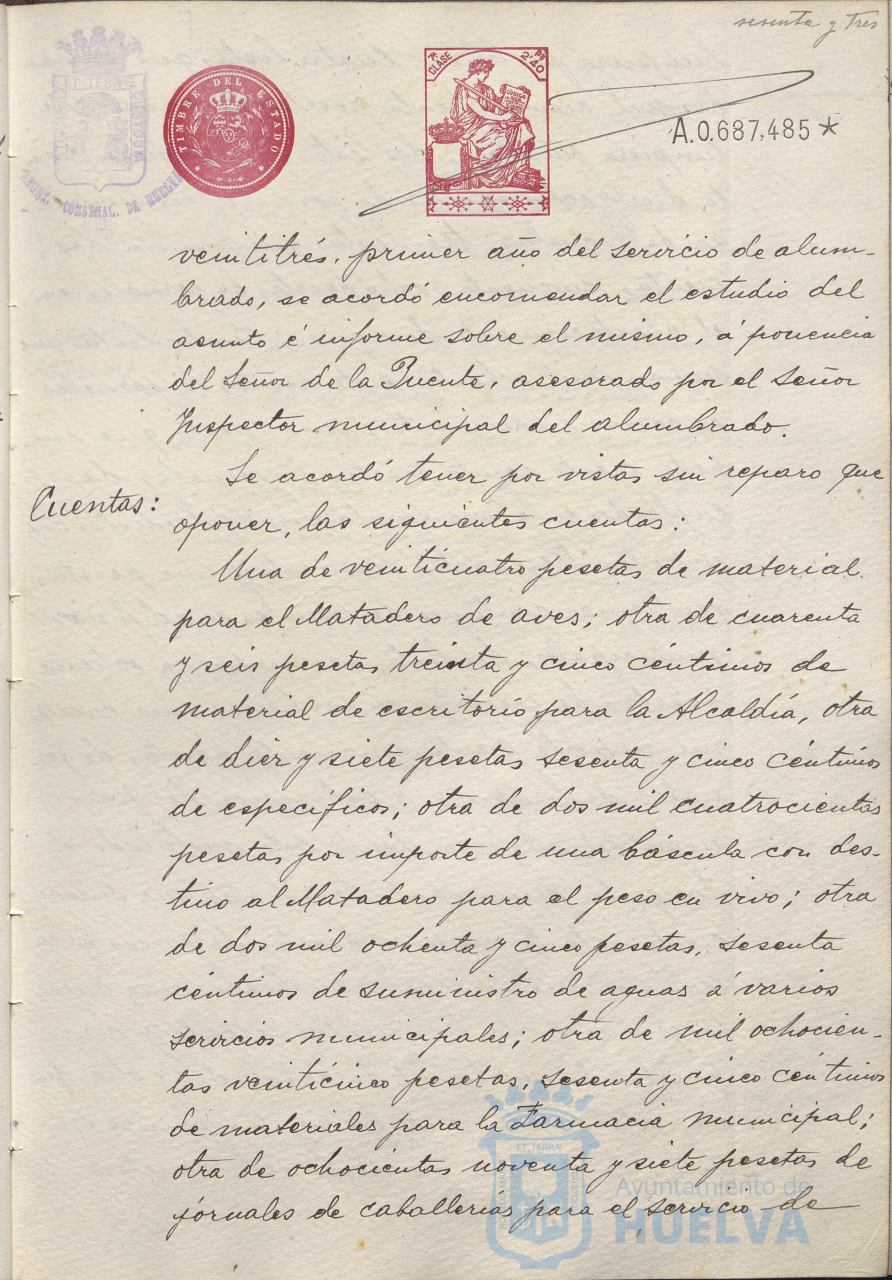 sesenta y tres
TIMBRE DEL ESTADO
7ª CLASE
2'40
A.0.687,485*
veintitrés, primer año del servicio de alum-
brado, se acordó encomendar el estudio del
asunto é informe sobre el mismo, á ponencia
del Señor de la Puente, asesorado por el Señor
Inspector municipal del alumbrado.
Cuentas:
Se acordó tener por vistas sin reparo que
oponer, las siguientes cuentas:
Una de veinticuatro pesetas de material
para el Matadero de aves; otra de cuarenta
y seis pesetas treinta y cinco céntimos de
material de escritorio para la Alcaldía, otra
de diez y siete pesetas sesenta y cinco céntimos
de específicos; otra de dos mil cuatrocientas
pesetas por importe de una báscula con des-
tino al Matadero para el peso en vivo; otra
de dos mil ochenta y cinco pesetas, sesenta
céntimos de suministro de aguas á varios
servicios municipales; otra de mil ochocien-
tas veinticinco pesetas, sesenta y cinco céntimos
de materiales para la Farmacia municipal;
otra de ochocientas noventa y siete pesetas de
jornales de caballerías para el servicio de
Ayuntamiento de
HUELVA